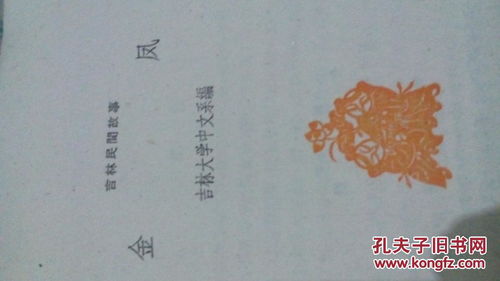 吉林民間故事
金凤
吉林大学中文系編
孔夫子旧书网
www.kongfz.com